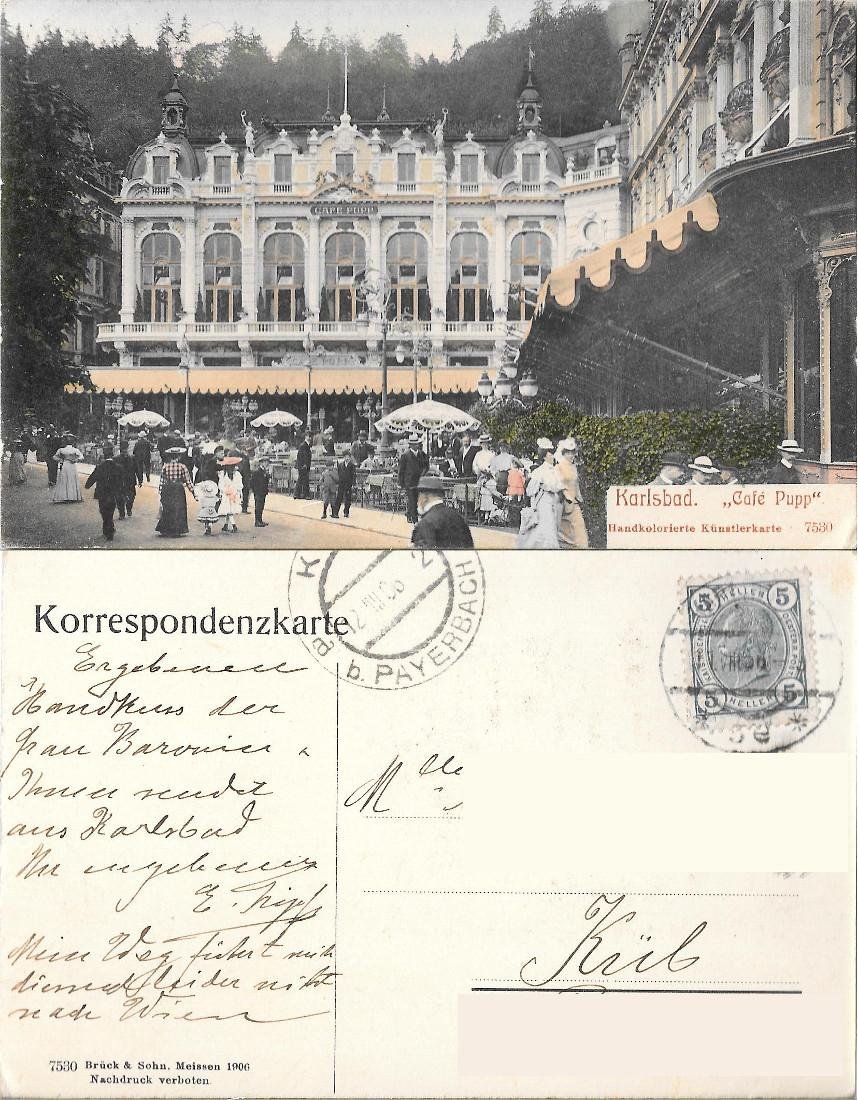 CAFE PUPP
Karlsbad. „Café Pupp“.
Handkolorierte Künstlerkarte 7530
Korrespondenzkarte
K
2
12 VIII 06
a
b. PAYERBACH
5 HELLER 5
KAISERL. KÖNIGL.
ÖSTERR. POST
5 HELLER 5
VIII 06
Ergebenen
Handkuss der
Frau Baronin u
Ihnen sendet
aus Karlsbad
Ihr ergebener
E.
Mein Weg führt mich
diesmal leider nicht
nach Wien
Mlle
Küb
7530 Brück & Sohn, Meissen 1906
Nachdruck verboten.